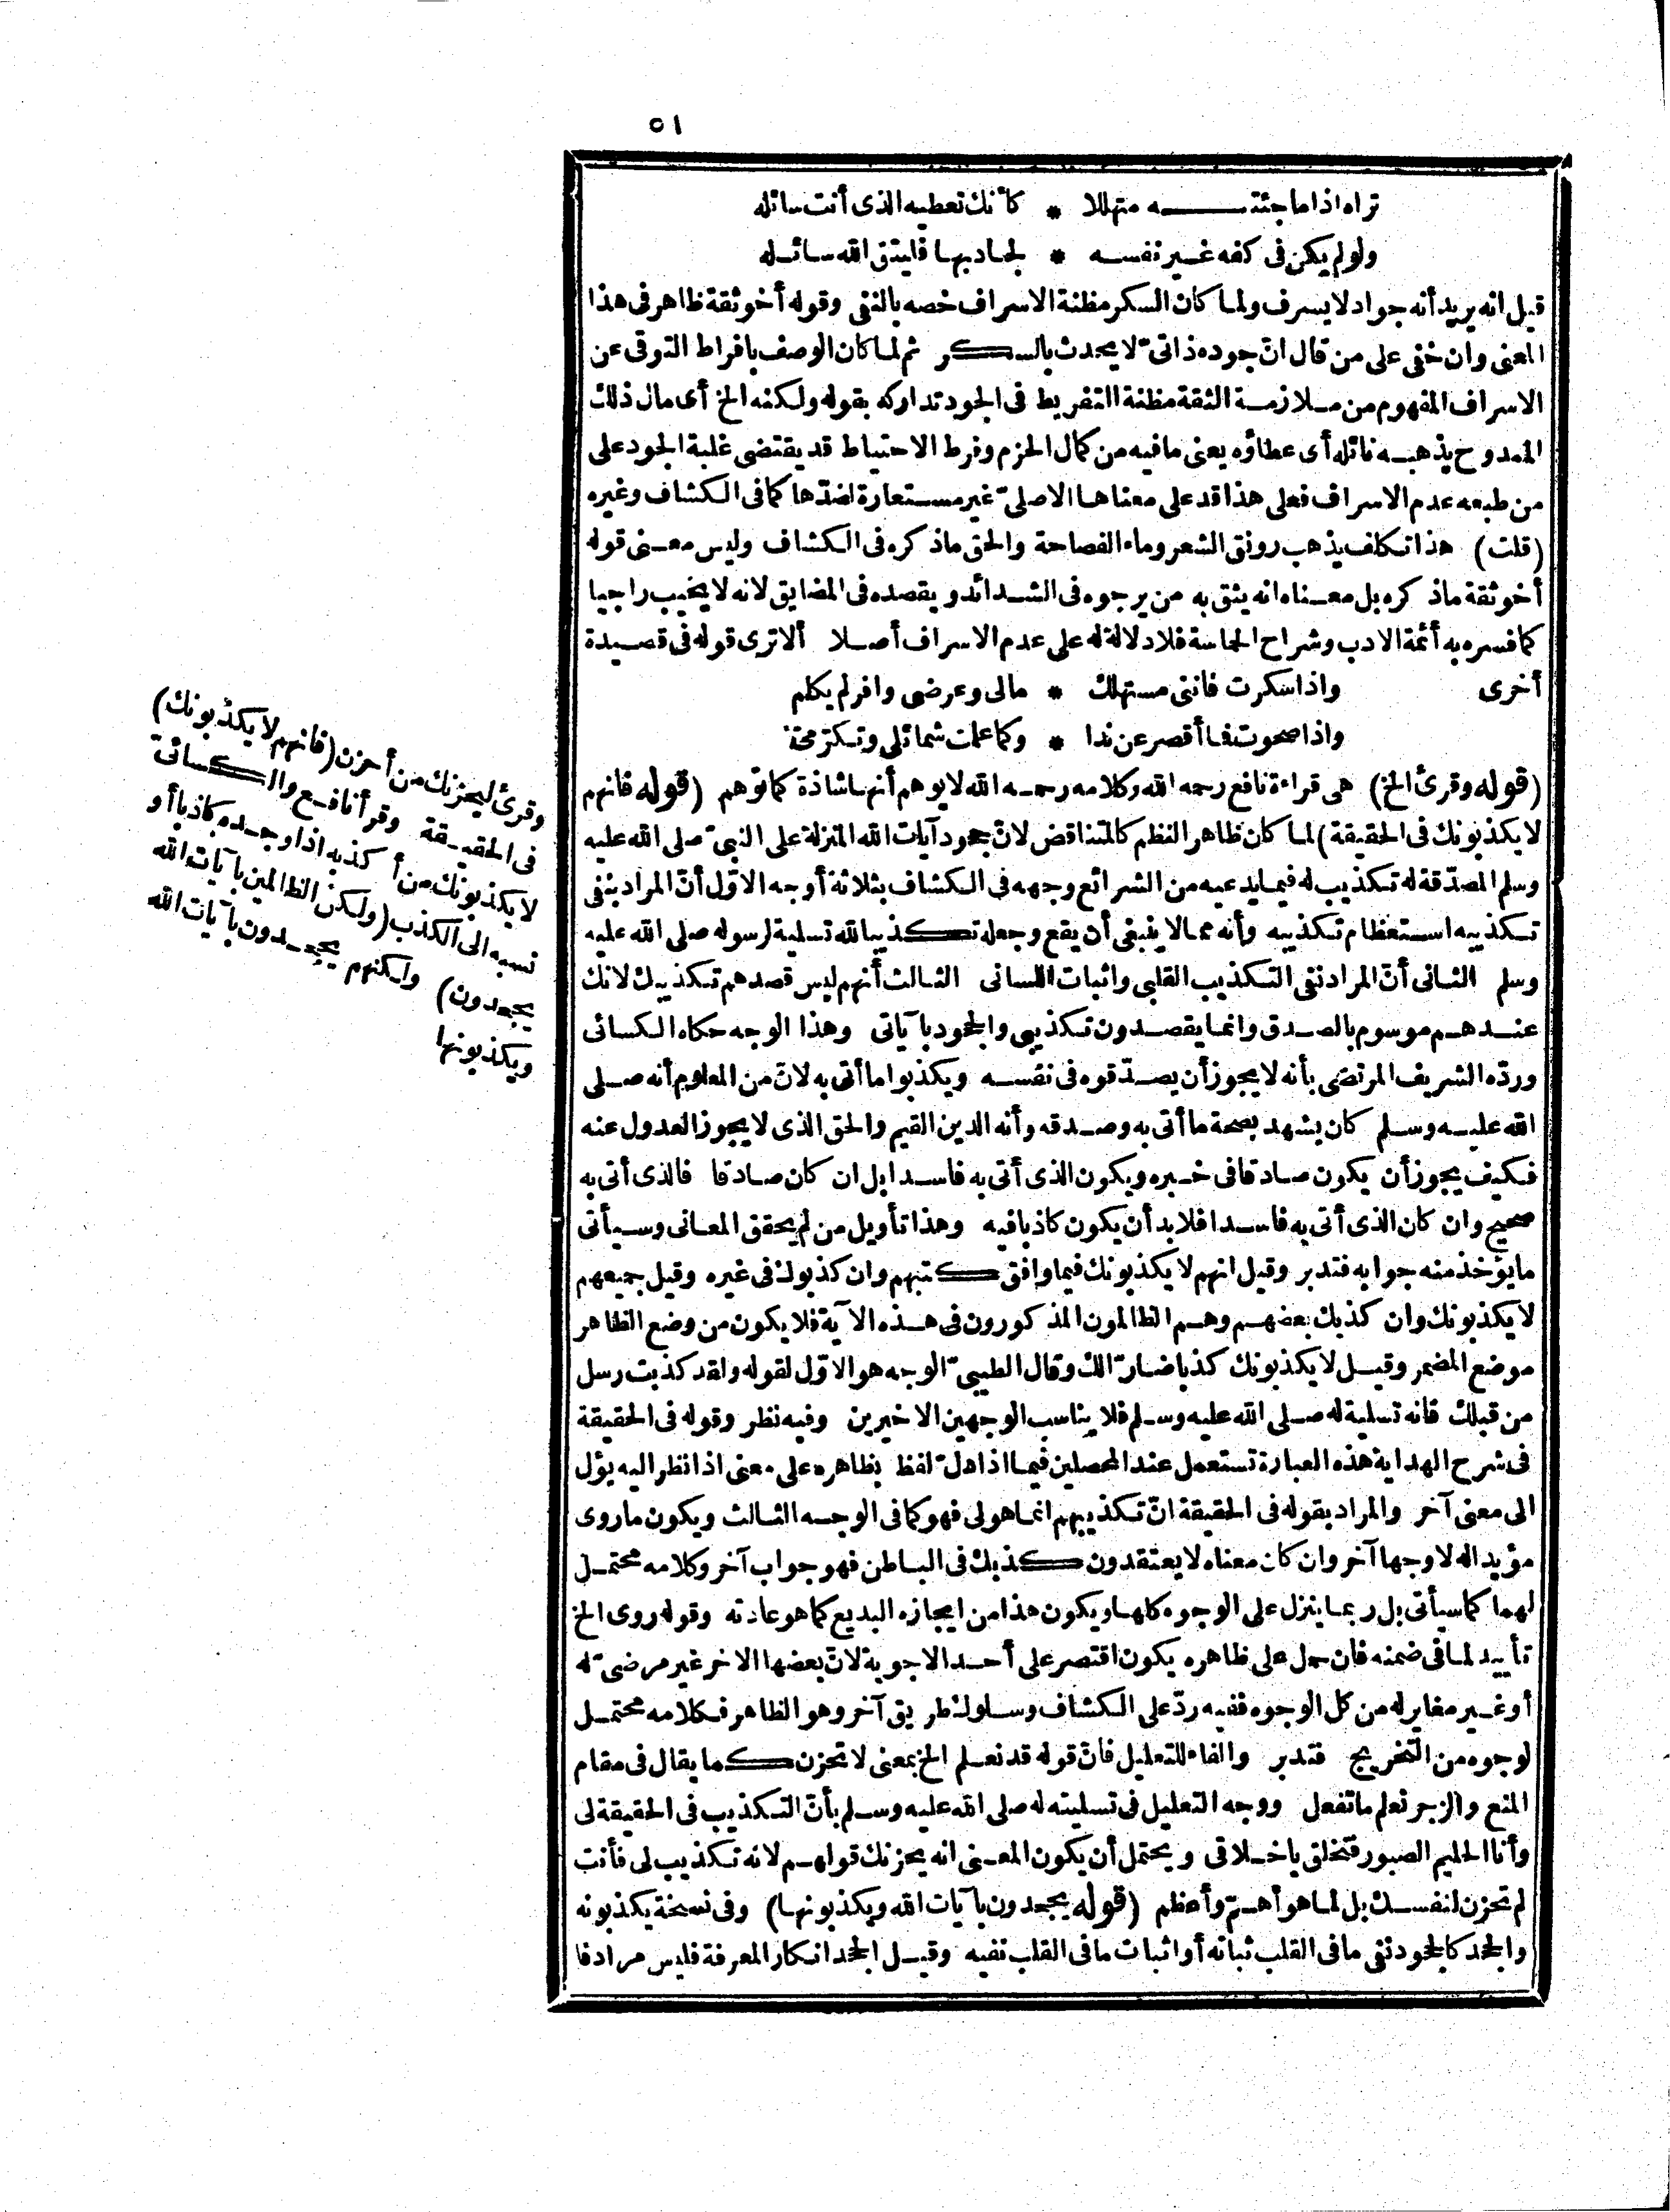 ٥١
تراه اذا ما جئته متهللا * كأنك تعطيه الذى أنت سائله
ولو لم يكن فى كفه غير نفسه * لجاد بها فليتق الله سائله
قيل انه يريد أنه جواد لا يسرف ولما كان السكر مظنة الاسراف خصه بالنفى وقوله أخو ثقة ظاهر فى هذا
المعنى وان خفى على من قال انّ جوده ذاتىّ لا يحدث بالسكر ثم لما كان الوصف بافراط التوقى عن
الاسراف المفهوم من ملازمة الثقة مظنة التفريط فى الجود تداركه بقوله ولكنه الخ أى مال ذلك
الممدوح يذهبه نائله أى عطاؤه يعنى ما فيه من كمال الحزم وفرط الاحتياط قد يقتضى غلبة الجود على
من طبعه عدم الاسراف فعلى هذا قد على معناها الاصلىّ غير مستعارة لضدّها كما فى الكشاف وغيره
(قلت) هذا تكلف يذهب رونق الشعر وماء الفصاحة والحق ما ذكره فى الكشاف وليس معنى قوله
أخو ثقة ما ذكره بل معناه انه يثق به من يرجوه فى الشدائد ويقصده فى المضايق لانه لا يخيب راجيا
كما فسره به أئمة الادب وشراح الحماسة فلا دلالة له على عدم الاسراف أصلا ألا ترى قوله فى قصيدة
أخرى واذا سكرت فاننى مستهلك * مالى وعرضى وافر لم يكلم
واذا صحوت فما أقصر عن ندا * وكما علمت شمائلى وتكرّمى
(قوله وقرئ الخ) هى قراءة نافع رحمه الله وكلامه رحمه الله لا يوهم أنها شاذة كما توهم (قوله فانهم
لا يكذبونك فى الحقيقة) لما كان ظاهر النظم كالمتناقض لانّ جحود آيات الله المنزلة على النبىّ صلى الله عليه
وسلم المصدّقة له تكذيب له فيما يدعيه من الشرائع وجهه فى الكشاف بثلاثة أوجه الاوّل أنّ المراد بنفى
تكذيبه استعظام تكذيبه وأنه مما لا ينبغى أن يقع وجعله تكذيبا لله تسلية لرسوله صلى الله عليه
وسلم الثانى أنّ المراد نفى التكذيب القلبى واثبات اللسانى الثالث أنهم ليس قصدهم تكذيبك لانك
عندهم موسوم بالصدق وانما يقصدون تكذيبى والجحود بآياتى وهذا الوجه حكاه الكسائى
وردّه الشريف المرتضى بأنه لا يجوز أن يصدّقوه فى نفسه ويكذبوا ما أتى به لانّ من المعلوم أنه صلى
الله عليه وسلم كان يشهد بصحة ما أتى به وصدقه وأنه الدين القيم والحق الذى لا يجوز العدول عنه
فكيف يجوز أن يكون صادقا فى خبره ويكون الذى أتى به فاسدا بل ان كان صادقا فالذى أتى به
صحيح وان كان الذى أتى به فاسدا فلا بد أن يكون كاذبا فيه وهذا تأويل من لم يحقق المعانى وسيأتى
ما يؤخذ منه جوابه فتدبر وقيل انهم لا يكذبونك فيما وافق كتبهم وان كذبوك فى غيره وقيل جميعهم
لا يكذبونك وان كذبك بعضهم وهم الظالمون المذكورون فى هذه الآية فلا يكون من وضع الظاهر
موضع المضمر وقيل لا يكذبونك كذبا ضارّا لك وقال الطيبىّ الوجه هو الاوّل لقوله ولقد كذبت رسل
من قبلك فانه تسلية له صلى الله عليه وسلم فلا يناسب الوجهين الاخيرين وفيه نظر وقوله فى الحقيقة
فى شرح الهداية هذه العبارة تستعمل عند المحصلين فيما اذا دل لفظ بظاهره على معنى اذا نظر اليه يؤل
الى معنى آخر والمراد بقوله فى الحقيقة انّ تكذيبهم انما هو لى فهو كما فى الوجه الثالث ويكون ما روى
مؤيدا له لا وجها آخر وان كان معناه لا يعتقدون كذبك فى الباطن فهو جواب آخر وكلامه محتمل
لهما كما سيأتى بل ربما ينزل على الوجوه كلها ويكون هذا من ايجازه البديع كما هو عادته وقوله روى الخ
تأييد لما فى ضمنه فان حمل على ظاهره يكون اقتصر على أحد الاجوبة لانّ بعضها الاخر غير مرضىّ له
أو غير مغاير له من كل الوجوه ففيه ردّ على الكشاف وسلوك طريق آخر وهو الظاهر فكلامه محتمل
لوجوه من التخريج فتدبر والفاء للتعليل فانّ قوله قد نعلم الخ بمعنى لا تحزن كما يقال فى مقام
المنع والزجر نعلم ما تفعل ووجه التعليل فى تسليته له صلى الله عليه وسلم بأنّ التكذيب فى الحقيقة لى
وأنا الحليم الصبور فتخلق باخلاقى ويحتمل أن يكون المعنى انه يحزنك قولهم لانه تكذيب لى فأنت
لم تحزن لنفسك بل لما هو أهمّ وأعظم (قوله يجحدون بآيات الله ويكذبونها) وفى نسخة يكذبونه
والجحد كالجحود نفى ما فى القلب ثباته أو اثبات ما فى القلب نفيه وقيل الجحد انكار المعرفة فليس مرادفا
وقرئ ليحزنك من أحزن (فانهم لا يكذبونك)
فى الحقيقة وقرأ نافع والكسائىّ
لا يكذبونك من أكذبه اذا وجده كاذبا أو
نسبه الى الكذب (ولكنّ الظالمين بآيات الله
يجحدون) ولكنهم يجحدون بآيات الله
ويكذبونها